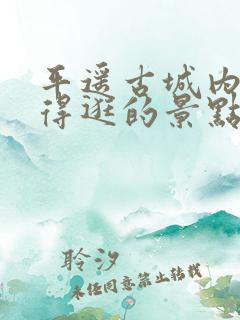 平遥古城内
得逛的景點
聆汐
未经同意禁止转载